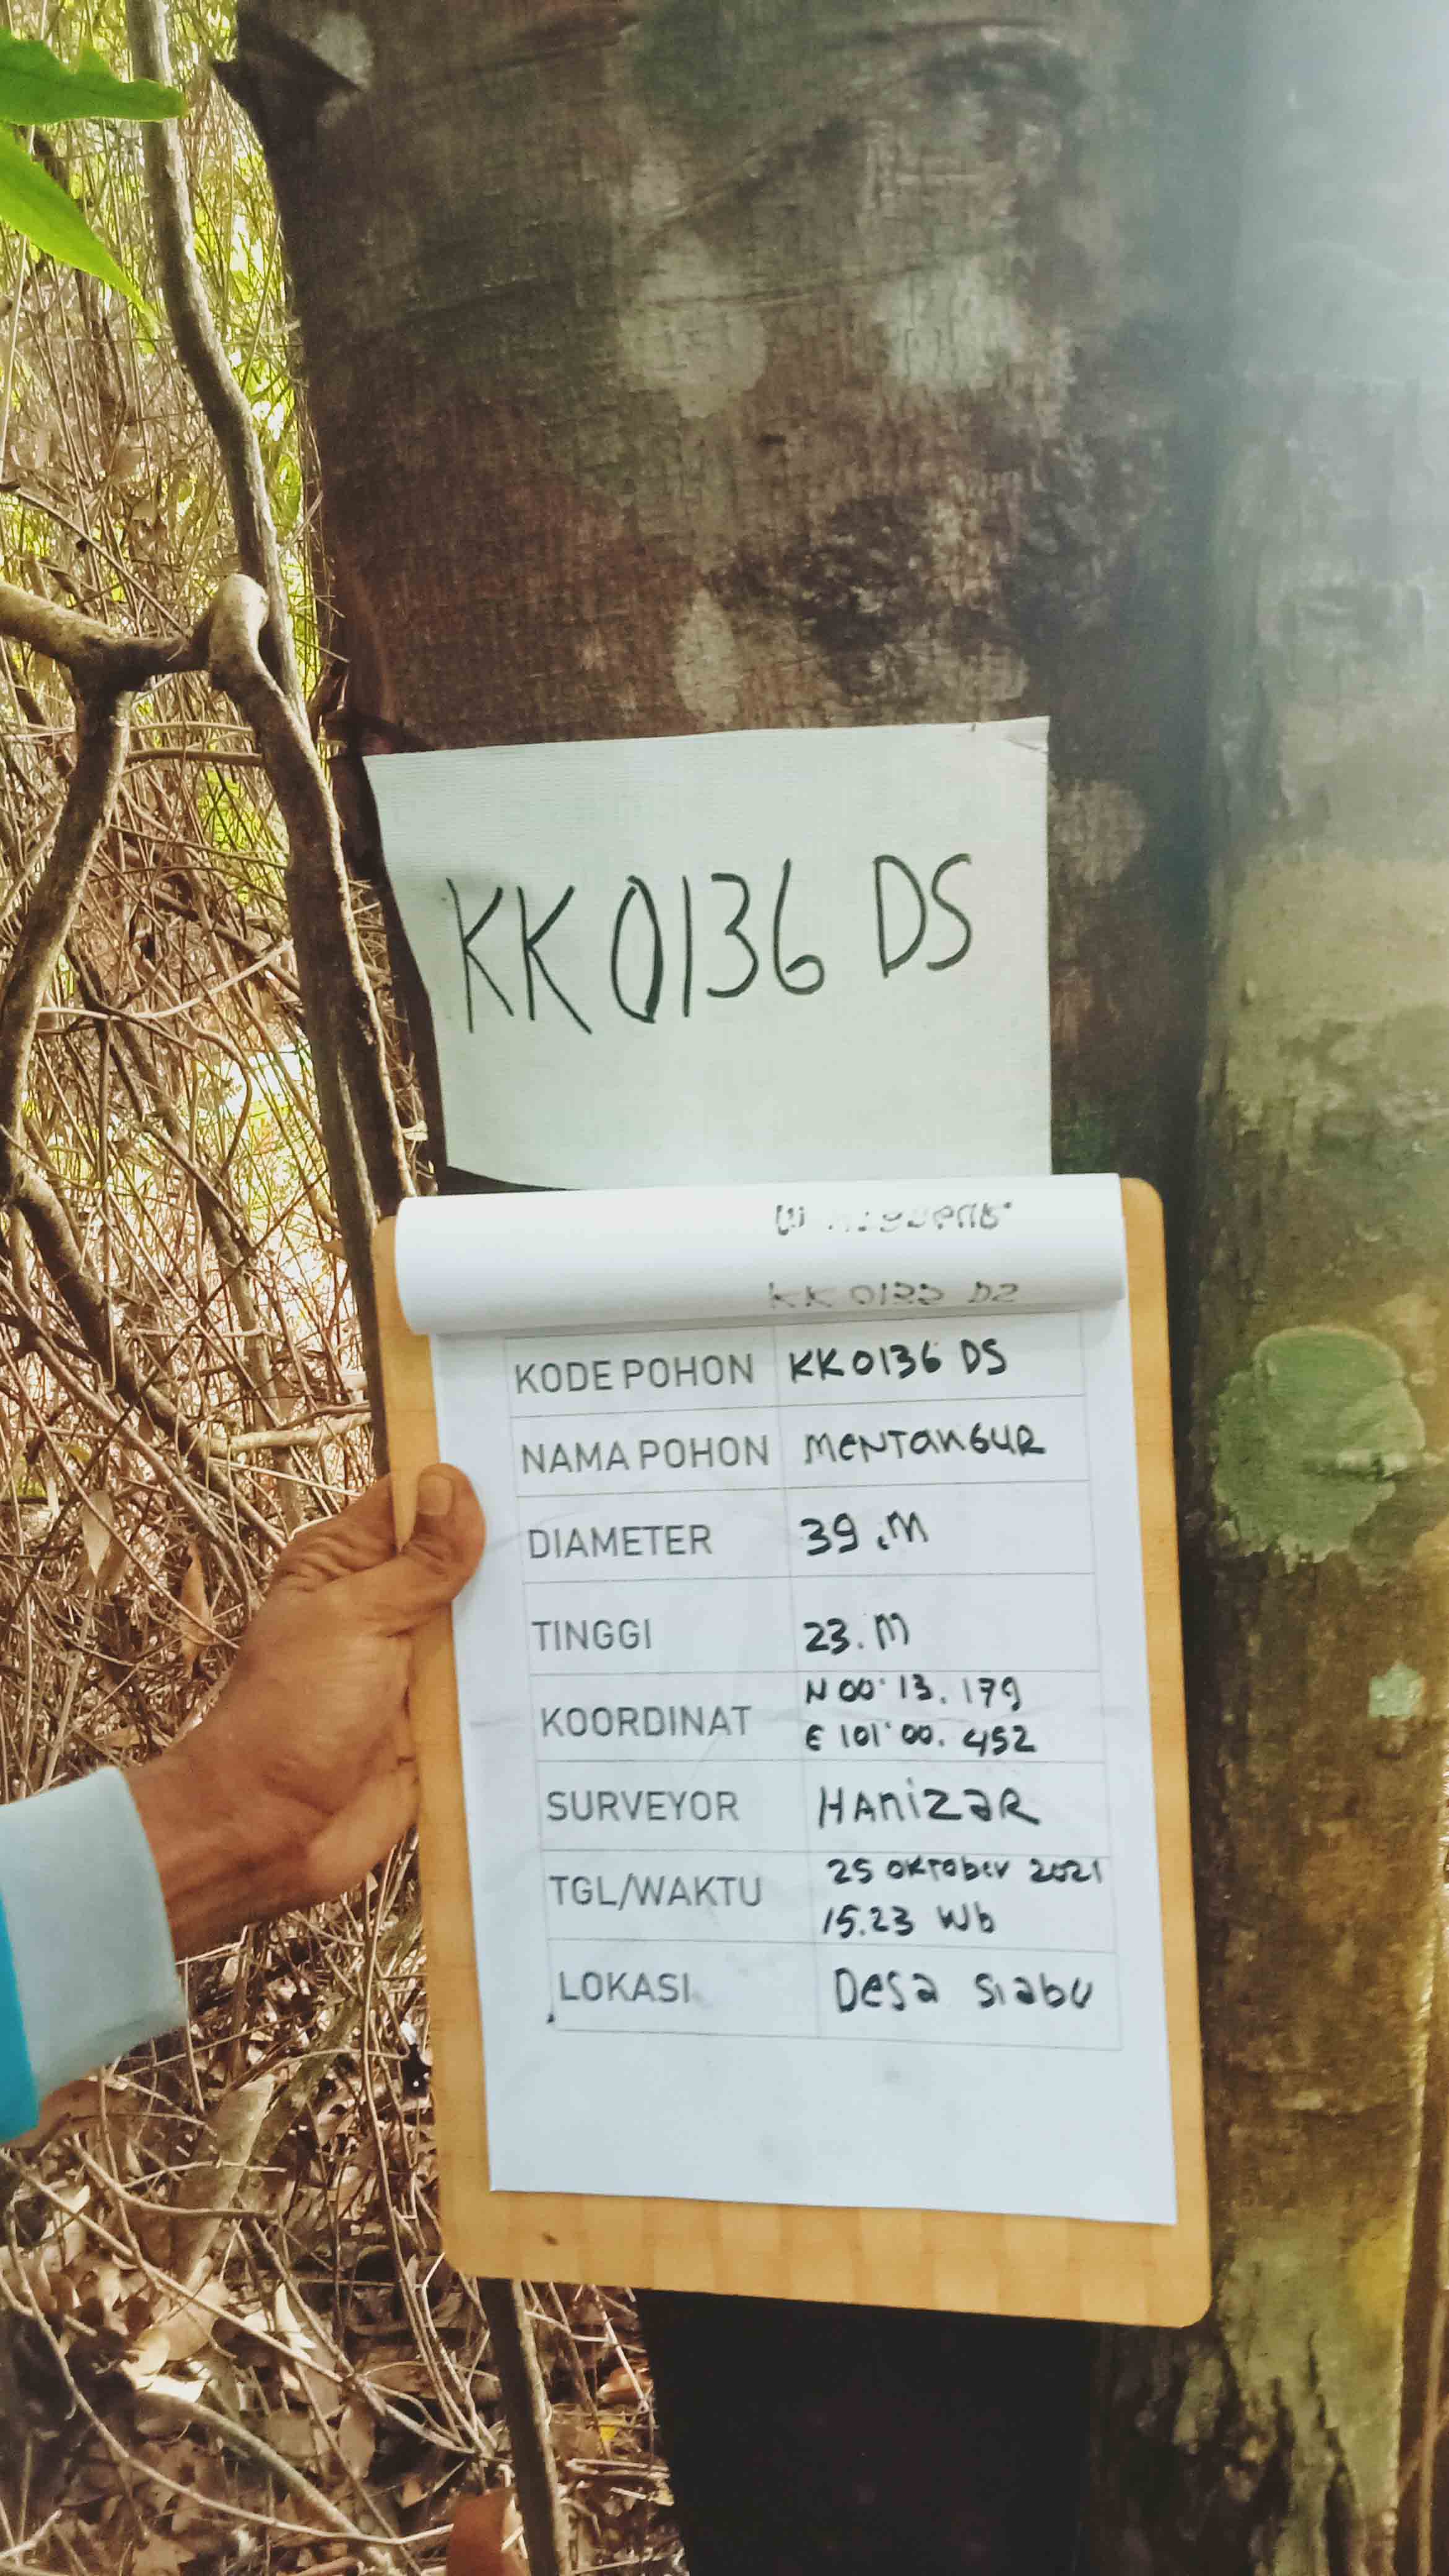 KK 0136 DS
KODE POHON KK0136 DS
NAMA POHON MENTANGUR
DIAMETER 39 .M
TINGGI 23.M
KOORDINAT N 00° 13. 179
E 101° 00. 452
SURVEYOR HANIZAR
TGL/WAKTU 25 OKTOBER 2021
15.23 Wb
LOKASI Desa Siabu